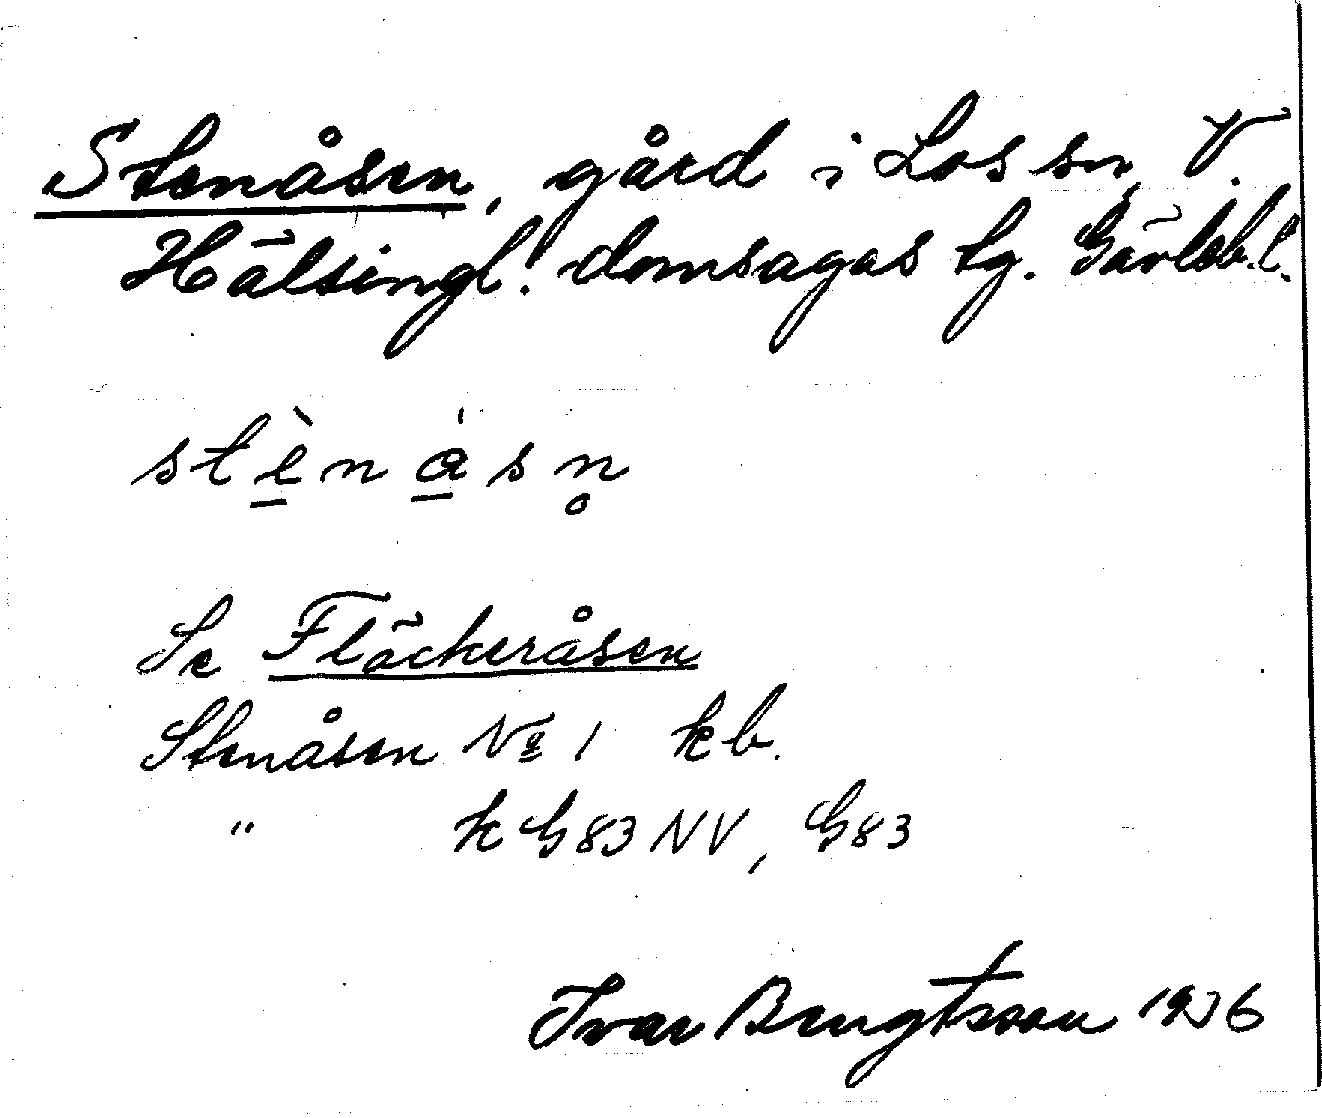 Stenåsen, gård i Los sn, V.
Hälsingl. domsagas tg. Gävleb. l.
stè̱ná̱sn̥
Se Fläckeråsen
Stenåsen № 1 kb.
" k G83NV, G83
Ivar Bengtsson 1936